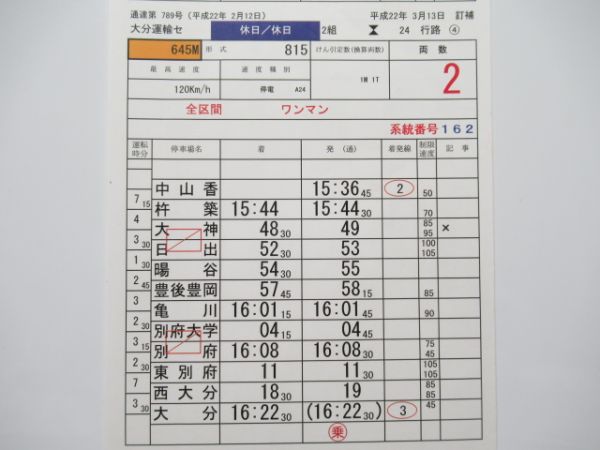 通達第 789号（平成22年 2月12日） 平成22年 3月13日 訂補
大分運輸セ 休日／休日 2組 24 行路 ④
645M 形 式 815 けん引定数(換算両数) 両 数
最 高 速 度 速 度 種 別 1M 1T 2
120Km/h 停電 A24
全区間 ワンマン
系統番号162
運転時分 停車場名 着 発 （通） 着発線 制限速度 記 事
中山香 15:36 45 2 50
7 15
杵 築 15:44 15:44 30 70
4
大 神 48 30 49 85 95 ×
3 30
日 出 52 30 53 100 105
1 30
暘 谷 54 30 55
2 45
豊後豊岡 57 45 58 15 85
3
亀 川 16:01 15 16:01 45 90
2 30
別府大学 04 15 04 45
3 15
別 府 16:08 16:08 30 75 45
2 30
東別府 11 11 30 105 105
7
西大分 18 30 19 85 85
3 30
大 分 16:22 30 (16:22 30) 3 45
乗